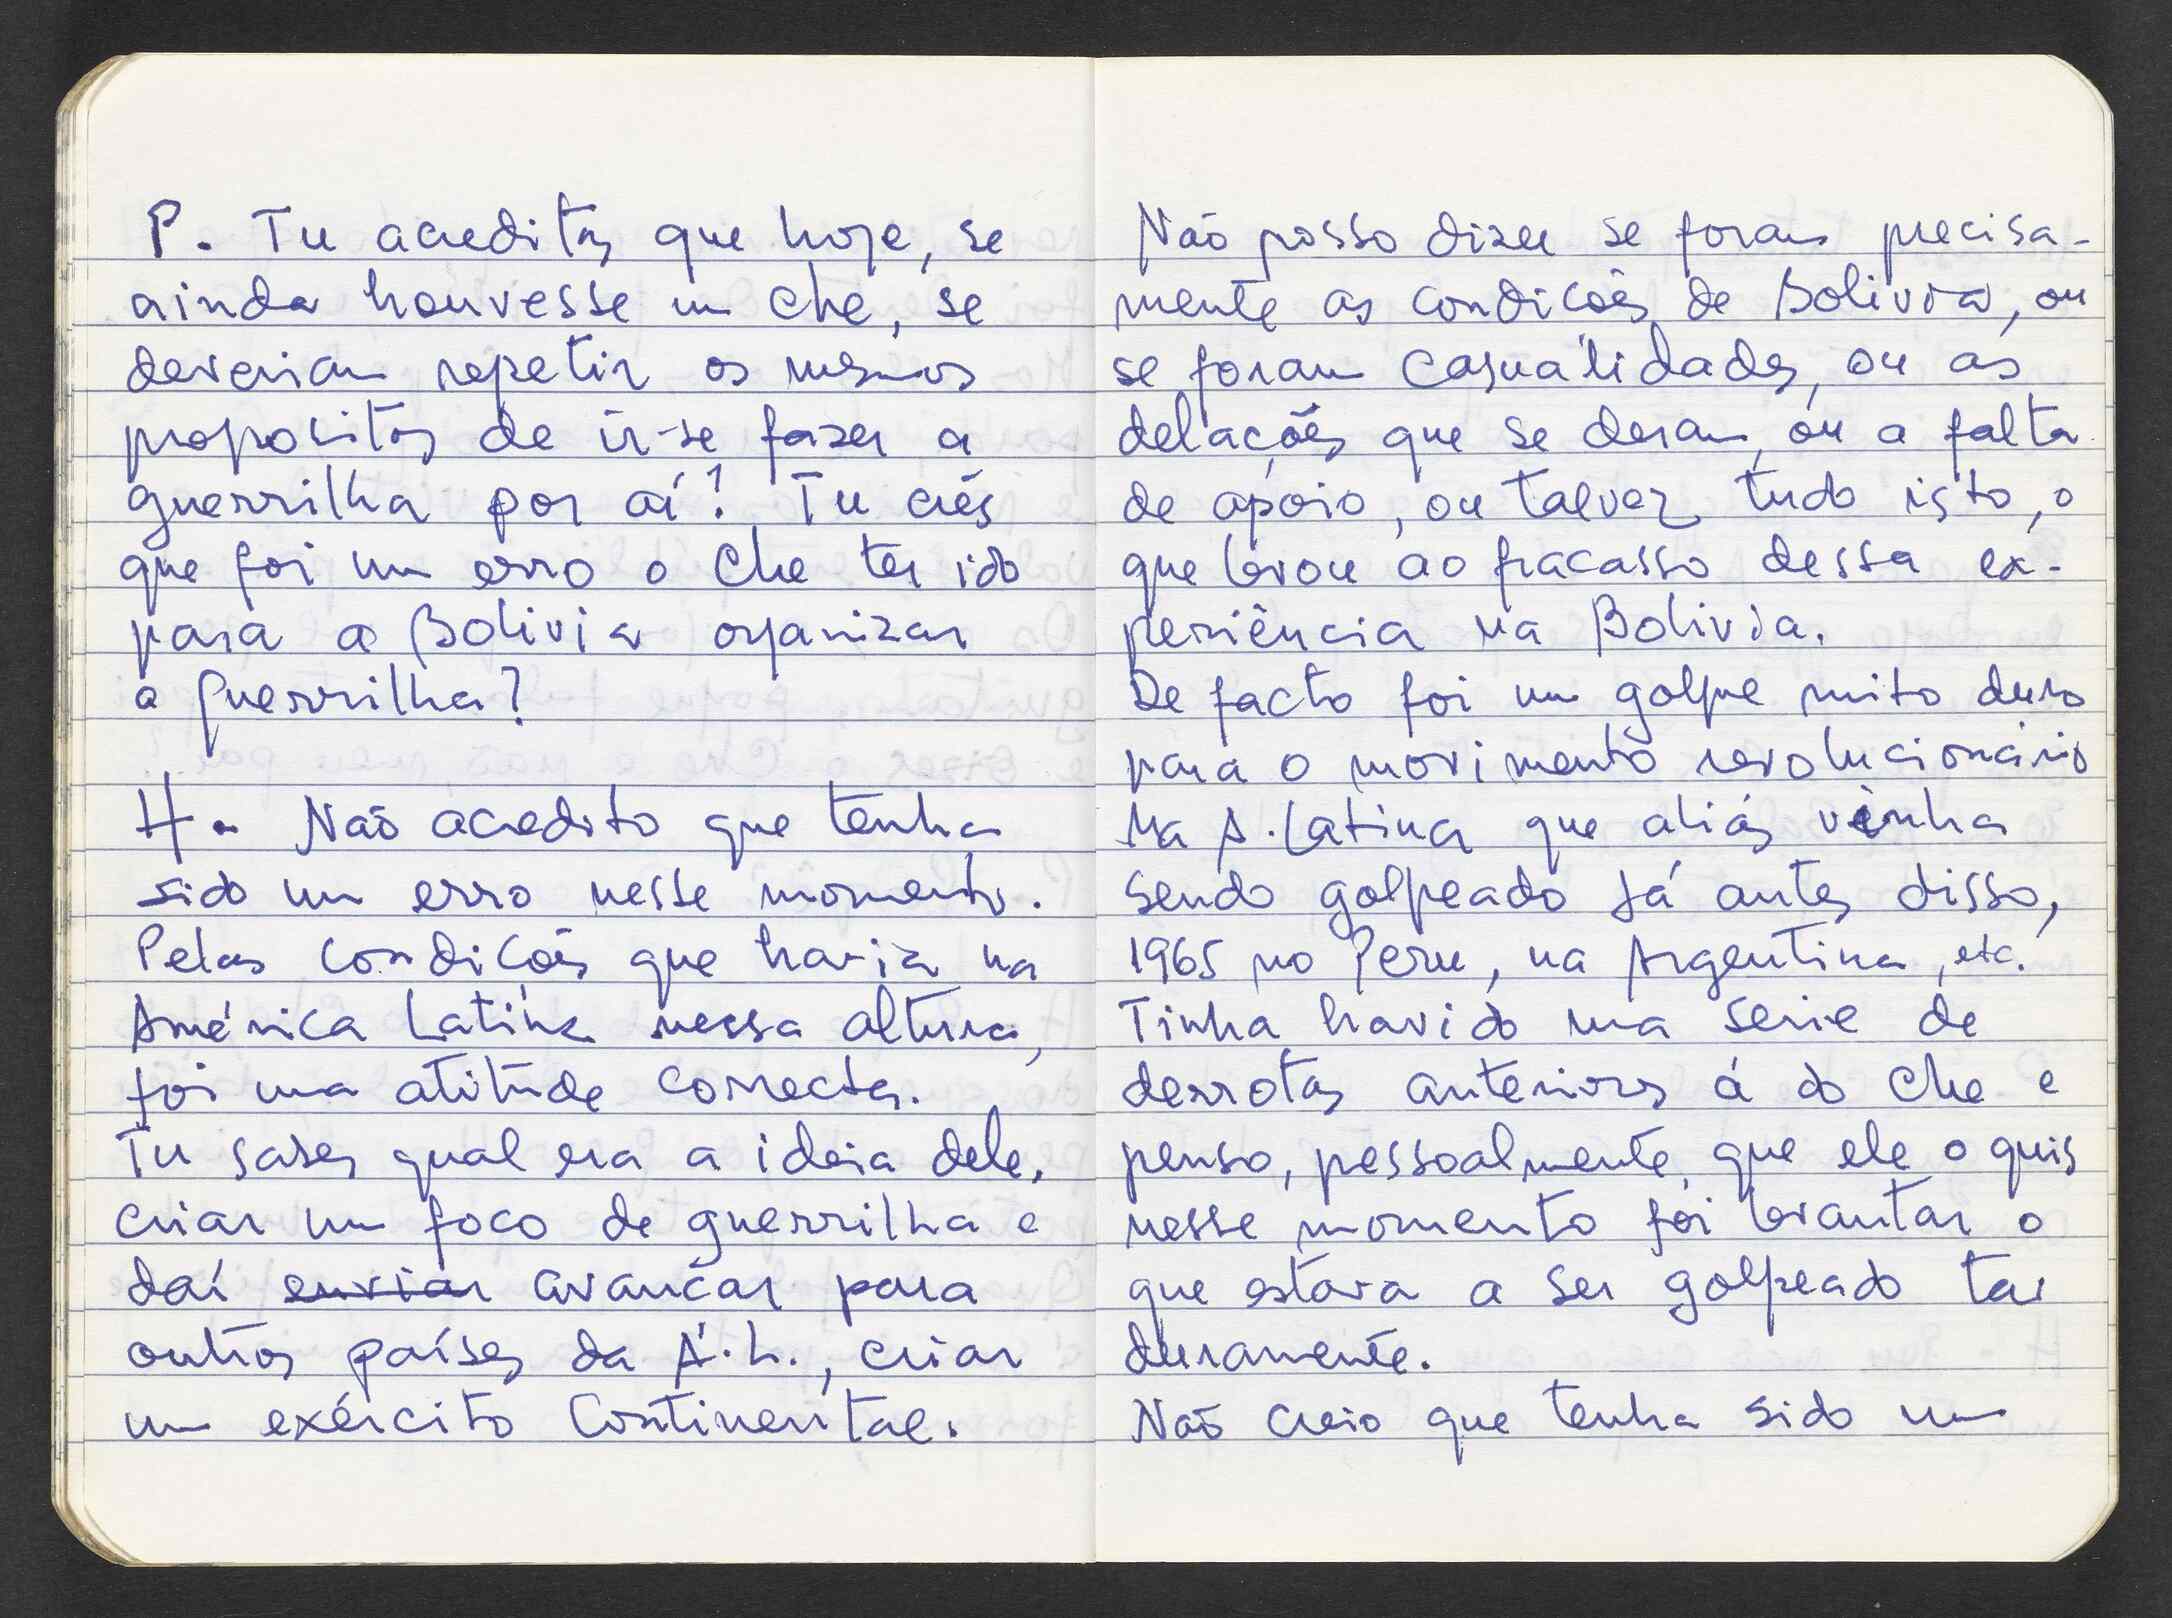 P. Tu acreditas que hoje, se
ainda houvesse um Che, se
deveriam repetir os mesmos
propositos de ir-se fazer a
guerrilha por aí? Tu crês
que foi um erro o Che ter ido
para a Bolivia organizar
a guerrilha?
H - Não acredito que tenha
sido um erro nesse momento.
Pelas condições que havia na
América Latina nessa altura,
foi uma atitude correcta.
Tu sabes qual era a ideia dele,
criar um foco de guerrilha e
daí enviar avançar para
outros países da A.L., criar
um exército Continental.
Não posso dizer se foram precisa-
mente as condicões de Bolivia, ou
se foram casualidades, ou as
delações que se deram, ou a falta
de apoio, ou talvez tudo isto, o
que levou ao fracasso dessa ex-
periência na Bolivia.
De facto foi um golpe muito duro
para o movimento revolucionário
na A. Latina que aliás vinha
sendo golpeado já antes disso,
1965 no Peru, na Argentina, etc.
Tinha havido uma serie de
derrotas anteriores á do Che e
penso, pessoalmente, que ele o quis
nesse momento foi levantar o
que estava a ser golpeado tao
duramente.
Não creio que tenha sido um